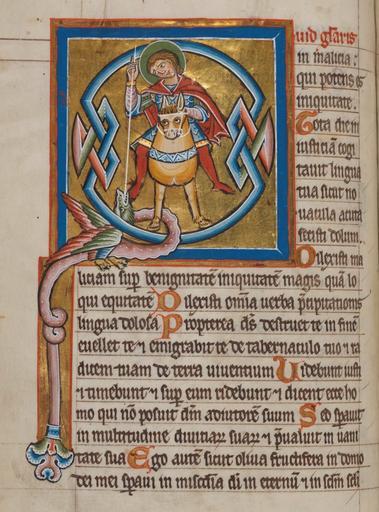 uid gl'aris
in malicia:
qui potens es
iniquitate.
Tota die in
iusticiā cogi
tauit lingua
tua sicut no
uacula acuta
fecisti dolum.
Dilexisti ma
liciam sup benignitatē iniquitatē magis quā lo
qui equitatē Dilexisti omīa uerba p̄cipitationis
lingua dolosa Propterea ds destruet te in finē
euellet te ⁊ emigrabit te de tabernaculo tuo ⁊ ra
dicem tuam de terra uiuentium Uidebunt iusti
⁊ timebunt ⁊ sup eum ridebunt ⁊ dicent ecce ho
mo qui nō posuit dm̄ adiutorē suum Sed sperauit
in multitudine diuitiarū suarū ⁊ p̄ualuit in uani
tate sua Ego autē sicut oliua fructifera in domo
dei mei speraui in mīscdia di in eternū ⁊ in sclm̄ scli